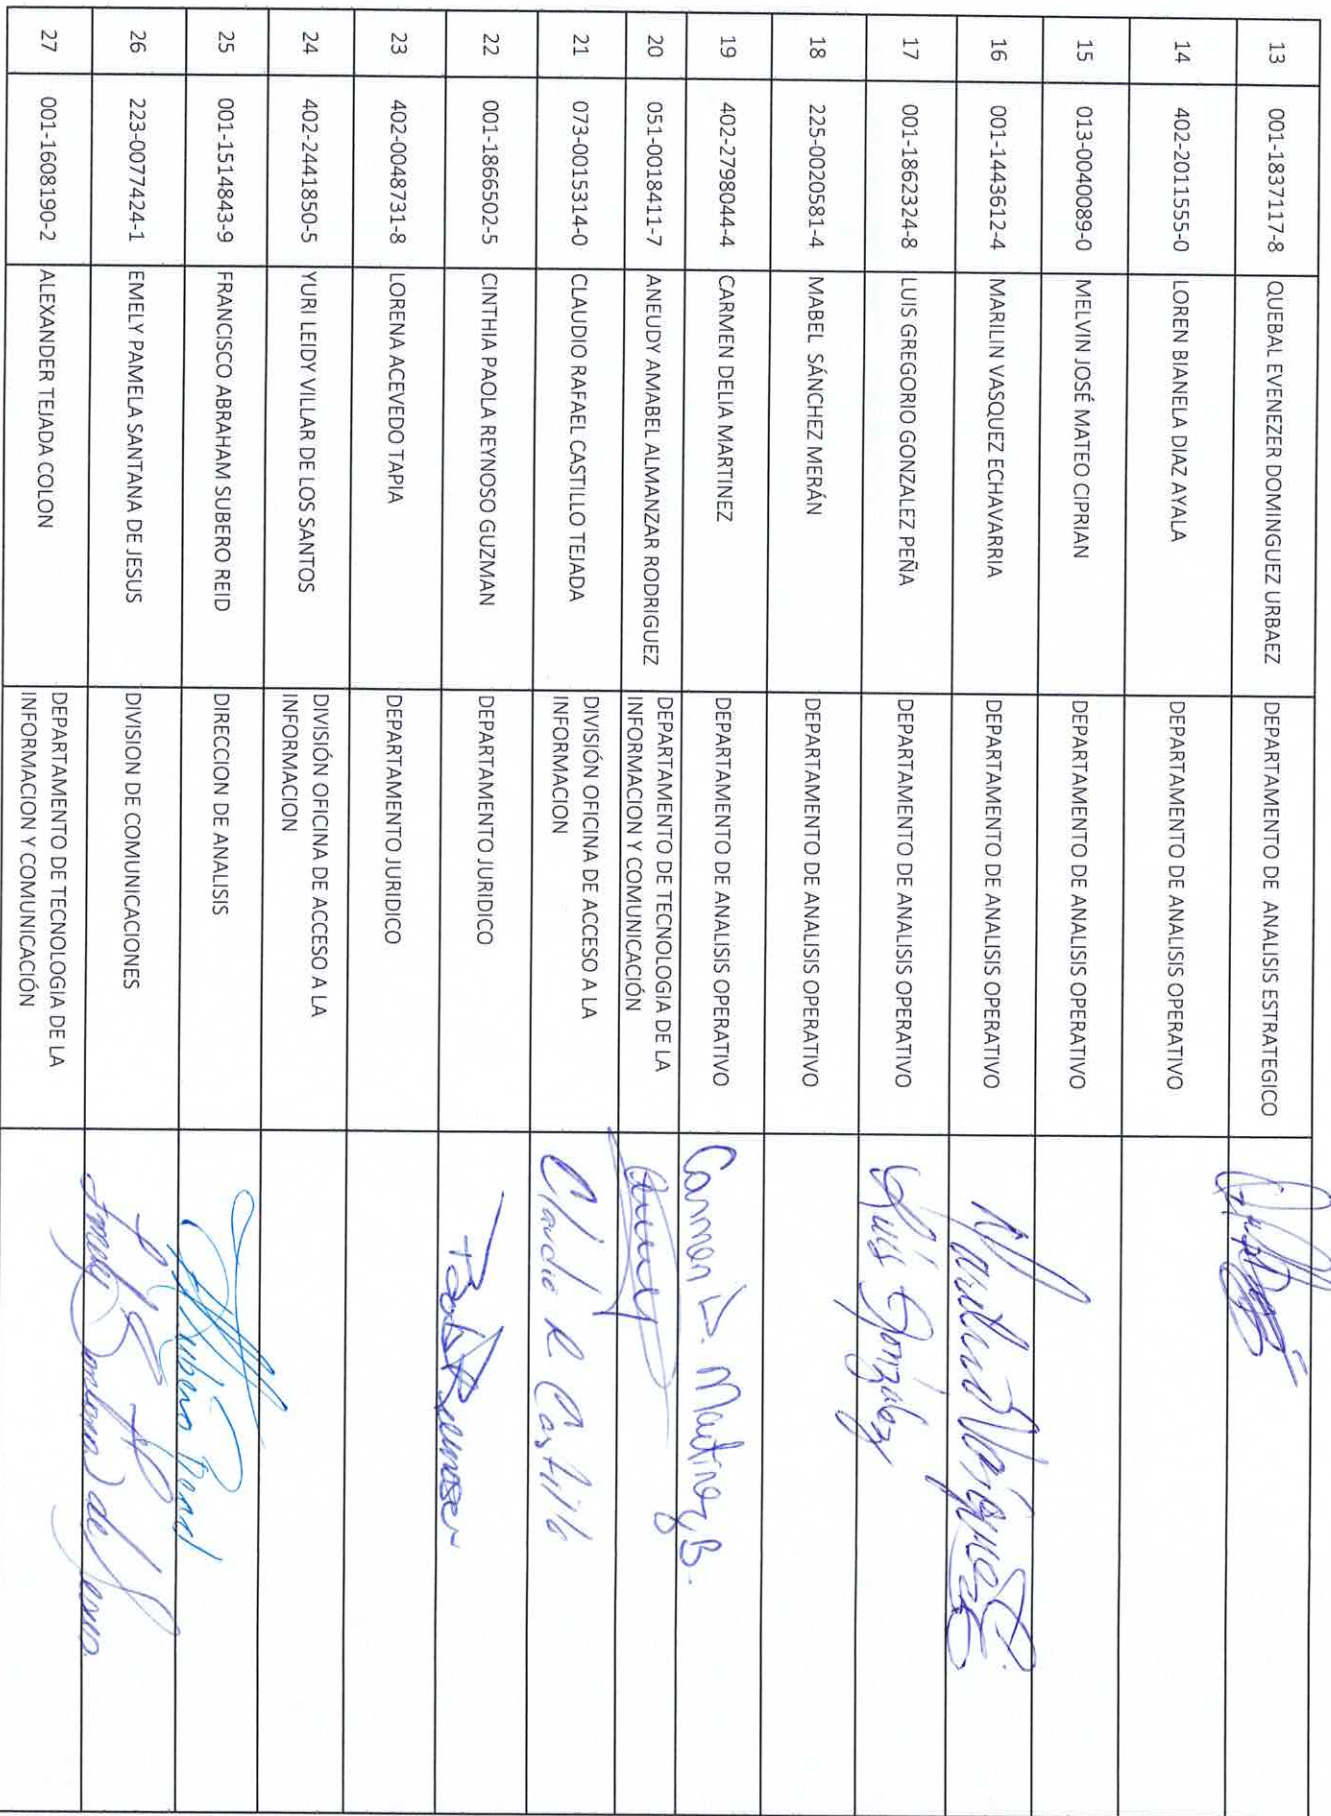 13 001-1837117-8 QUEBAL EVENEZER DOMINGUEZ URBAEZ DEPARTAMENTO DE ANALISIS ESTRATEGICO
14 402-2011555-0 LOREN BIANELA DIAZ AYALA DEPARTAMENTO DE ANALISIS OPERATIVO
15 013-0040089-0 MELVIN JOSÉ MATEO CIPRIAN DEPARTAMENTO DE ANALISIS OPERATIVO
16 001-1443612-4 MARILIN VASQUEZ ECHAVARRIA DEPARTAMENTO DE ANALISIS OPERATIVO Marilin Vásquez
17 001-1862324-8 LUIS GREGORIO GONZALEZ PEÑA DEPARTAMENTO DE ANALISIS OPERATIVO Luis González
18 225-0020581-4 MABEL SÁNCHEZ MERÁN DEPARTAMENTO DE ANALISIS OPERATIVO
19 402-2798044-4 CARMEN DELIA MARTINEZ DEPARTAMENTO DE ANALISIS OPERATIVO Carmen D. Martinez B.
20 051-0018411-7 ANEUDY AMABEL ALMANZAR RODRIGUEZ DEPARTAMENTO DE TECNOLOGIA DE LA
INFORMACION Y COMUNICACIÓN
21 073-0015314-0 CLAUDIO RAFAEL CASTILLO TEJADA DIVISIÓN OFICINA DE ACCESO A LA
INFORMACION Claudio R Castillo
22 001-1866502-5 CINTHIA PAOLA REYNOSO GUZMAN DEPARTAMENTO JURIDICO
23 402-0048731-8 LORENA ACEVEDO TAPIA DEPARTAMENTO JURIDICO
24 402-2441850-5 YURI LEIDY VILLAR DE LOS SANTOS DIVISIÓN OFICINA DE ACCESO A LA
INFORMACION
25 001-1514843-9 FRANCISCO ABRAHAM SUBERO REID DIRECCION DE ANALISIS
26 223-0077424-1 EMELY PAMELA SANTANA DE JESUS DIVISION DE COMUNICACIONES Emely Santana de Jesus
27 001-1608190-2 ALEXANDER TEJADA COLON DEPARTAMENTO DE TECNOLOGIA DE LA
INFORMACION Y COMUNICACIÓN